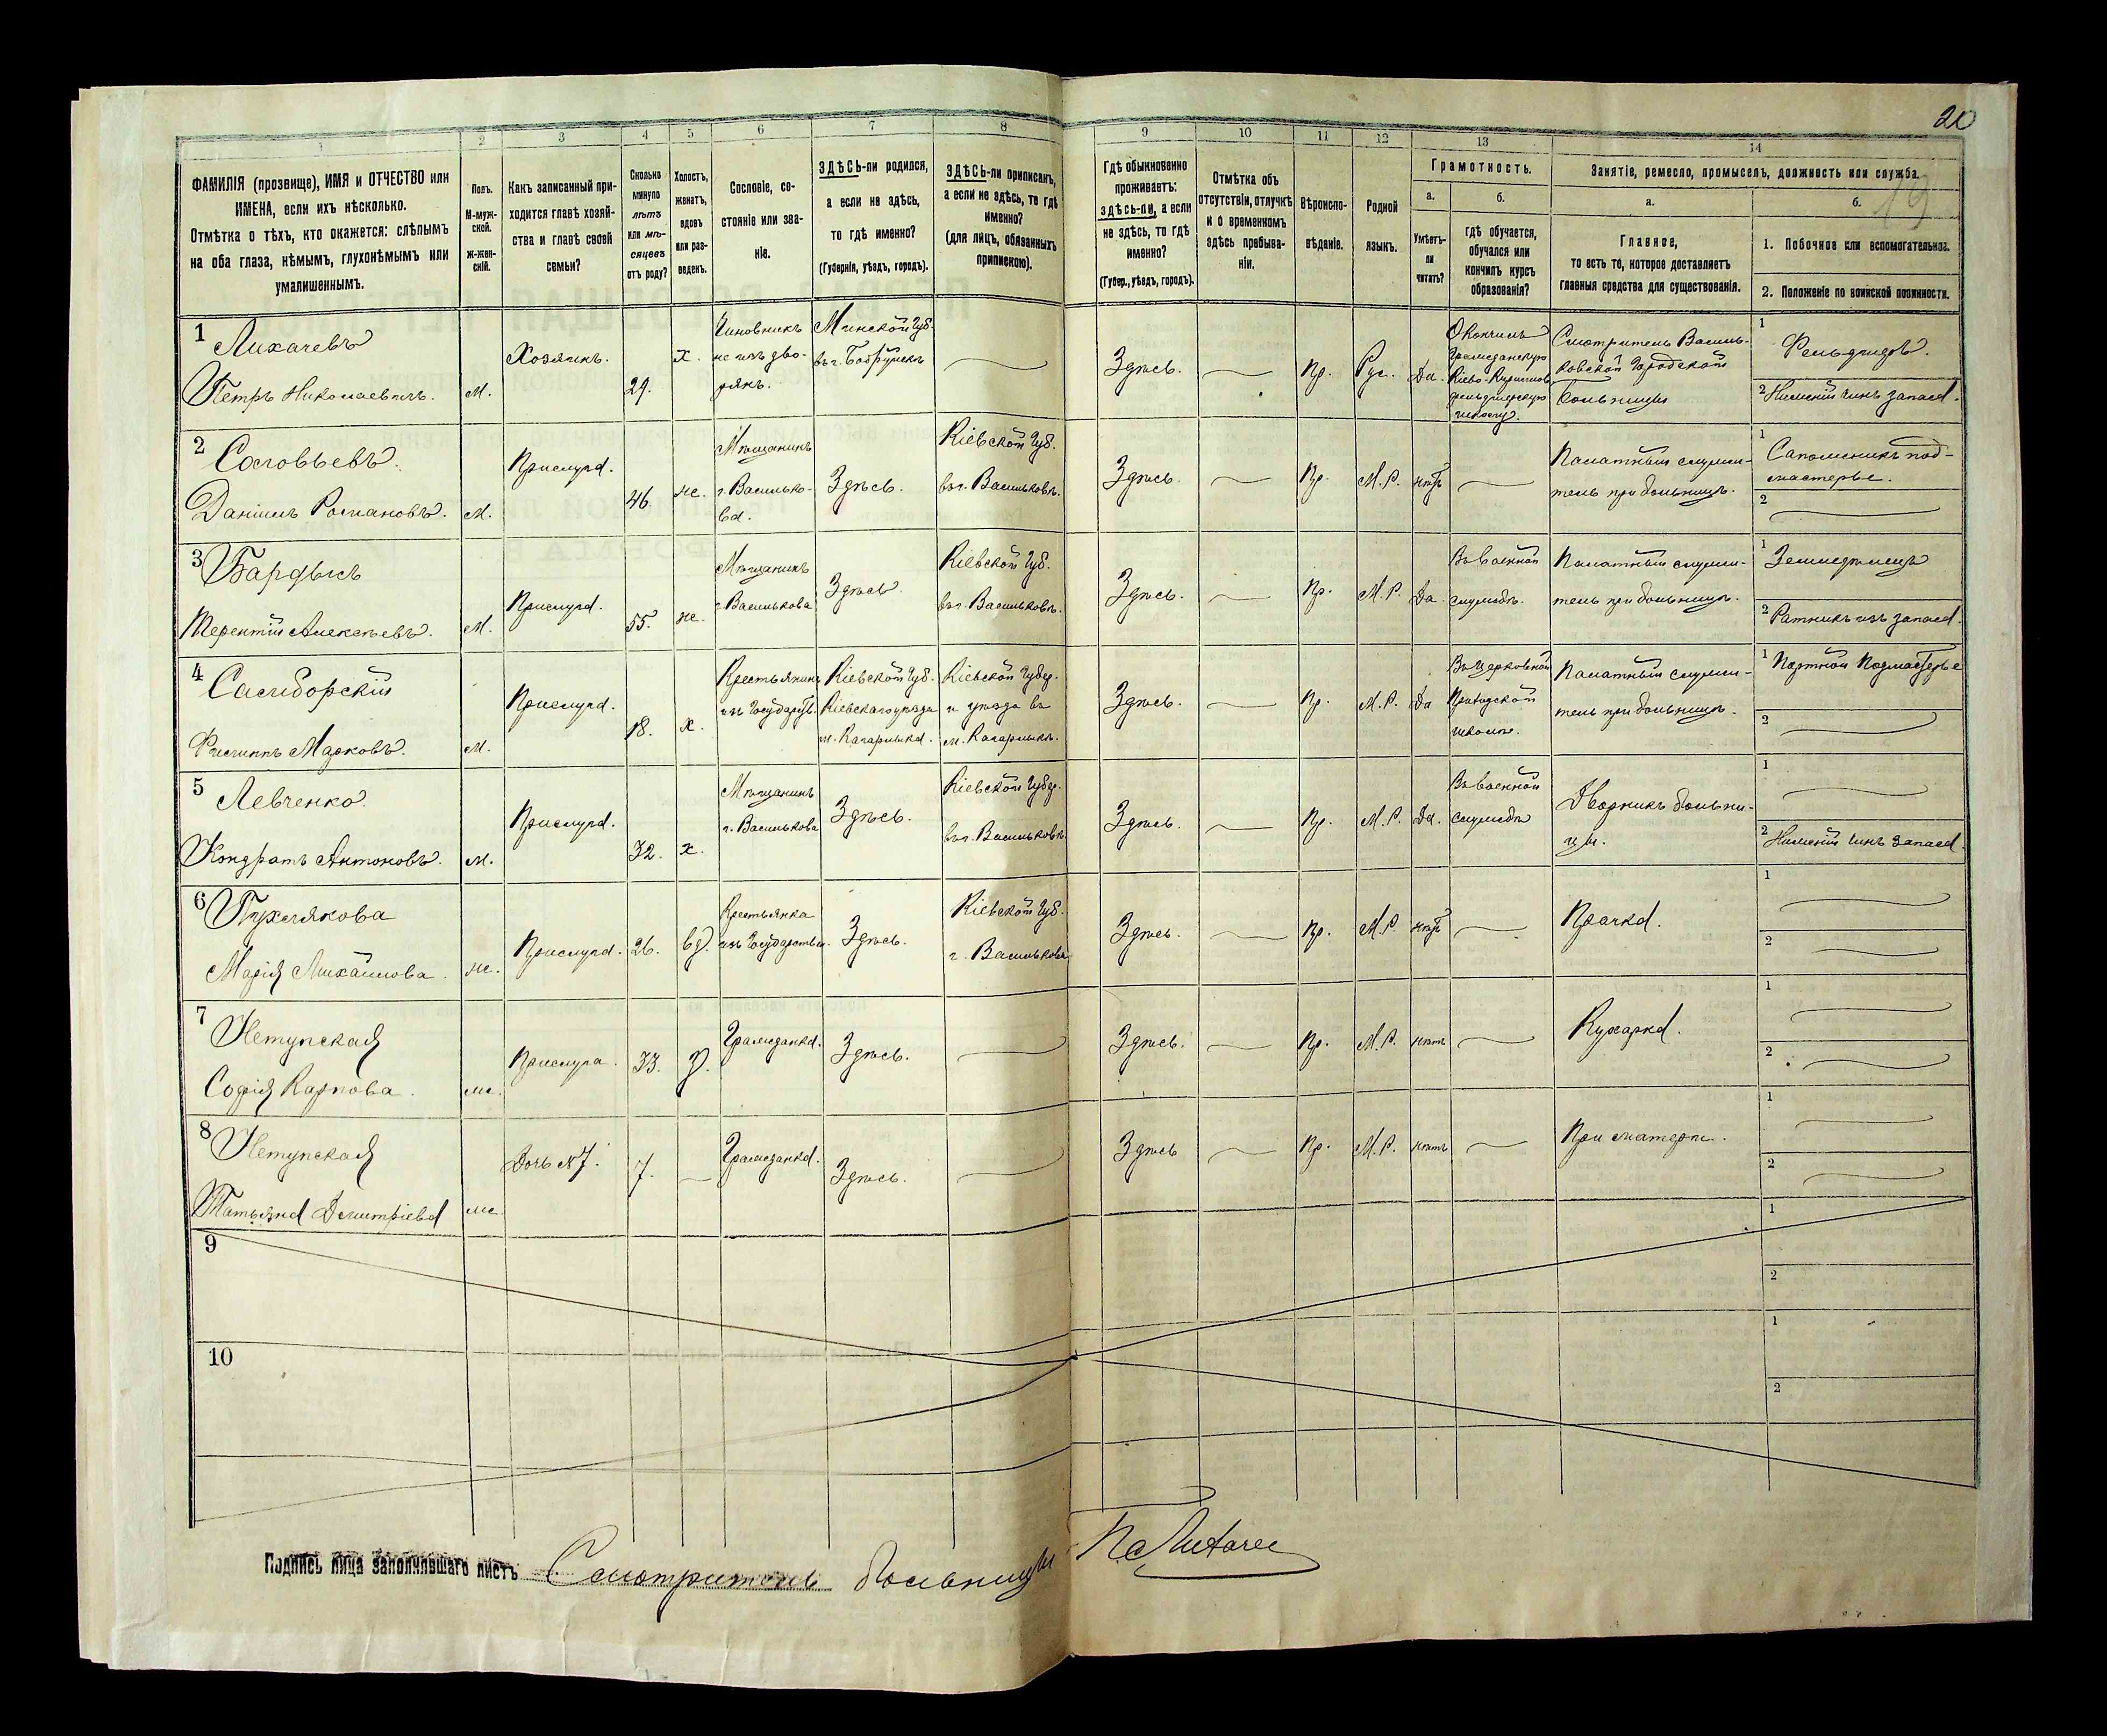 20
19
1 2 3 4 5 6 7 8 9 10 11 12 13 14
ФАМИЛІЯ (прозвище), ИМЯ и ОТЧЕСТВО или
ИМЕНА, если ихъ нѣсколько.
Отмѣтка о тѣхъ, кто окажется: слѣпымъ
на оба глаза, нѣмымъ, глухонѣмымъ или
умалишеннымъ.
Полъ.
М-муж-
ской.
Ж-жен-
скій.
Какъ записанный при-
ходится главѣ хозяй-
ства и главѣ своей
семьи?
Сколько
минуло
лѣтъ
или мѣ-
сяцевъ
отъ роду?
Холостъ,
женатъ,
вдовъ
или раз-
веденъ.
Сословіе, со-
стояніе или зва-
ніе.
ЗДѢСЬ-ли родился,
а если не здѣсь,
то гдѣ именно?
(Губернія, уѣздъ, городъ).
ЗДѢСЬ-ли приписанъ,
а если не здѣсь, то гдѣ
именно?
(для лицъ, обязанныхъ
припискою).
Гдѣ обыкновенно
проживаетъ:
здѣсь-ли, а если
не здѣсь, то гдѣ
именно?
(Губер., уѣздъ, городъ).
Отмѣтка объ
отсутствіи, отлучкѣ
и о временномъ
здѣсь пребыва-
ніи.
Вѣроиспо-
вѣданіе.
Родной
языкъ.
Грамотность.
а.
Умѣетъ-
ли
читать?
б.
гдѣ обучается,
обучался или
кончилъ курсъ
образованія?
Занятіе, ремесло, промыселъ, должность или служба.
а.
Главное,
то есть то, которое доставляетъ
главныя средства для существованія.
б.
1. Побочное или вспомогательное.
2. Положеніе по воинской повинности.
1
Лихачевъ
Петръ Николаевичъ.
м.
Хозяинъ.
29.
х.
Чиновникъ
не изъ дво-
рянъ.
Минской губ.
въ г. Бобруйскѣ
Здѣсь.
Пр.
Рус.
Да.
Окончилъ
Гражданскую
Кіево-Кирилов.
фельдшерскую
школу.
Смотритель Василь-
ковской Городской
больницы
1
Фельдшеръ.
2 Нижній чинъ запаса.
2
Соловьевъ.
Даніилъ Романовъ.
м.
Прислуга.
46
же.
Мѣщанинъ
г. Василько-
ва.
Здѣсь.
Кіевской губ.
въ г. Васильковѣ.
Здѣсь.
Пр.
М.Р.
нѣтъ
Палатный служи-
тель при больницѣ.
1
Сапожникъ под-
мастерье.
2
3
Бардысь
Терентій Алексѣевъ.
м.
Прислуга.
55.
же.
Мѣщанинъ
г. Василькова
Здѣсь
Кіевской губ.
въ г. Васильковѣ.
Здѣсь.
Пр.
М.Р.
Да
Въ военной
службѣ.
Палатный служи-
тель при больницѣ.
1
Земледѣлецъ
2 Ратникъ изъ запаса.
4
Самборскій
Филиппъ Марковъ.
м.
Прислуга.
18.
х.
Крестьянинъ
изъ государств.
Кіевской губ.
Кіевскаго уѣзда
м. Кагарлыка.
Кіевской губер.
и уѣзда въ
м. Кагарлыкѣ.
Здѣсь.
Пр.
М.Р.
Да
Въ церковной
Приходской
школѣ.
Палатный служи-
тель при больницѣ.
1 Портной Подмастерье
2
5
Левченко.
Кондратъ Антоновъ.
м.
Прислуга.
32.
х.
Мѣщанинъ
г. Василькова
Здѣсь.
Кіевской губер.
въ г. Васильковѣ
Здѣсь.
Пр.
М.Р.
Да.
Въ военной
службѣ
Дворникъ больни-
цы.
1
2 Нижній чинъ запаса.
6
Пухлякова
Марія Михайлова.
же.
Прислуга.
26.
вд.
Крестьянка
изъ государствен.
Здѣсь.
Кіевской губ.
г. Василькова
Здѣсь.
Пр.
М.Р.
нѣтъ
Прачка.
1
2
7
Нетупская
Софія Карпова.
же.
Прислуга.
33.
д.
Гражданка.
Здѣсь.
Здѣсь.
Пр.
М.Р.
нѣтъ
Кухарка.
1
2
8
Нетупская
Татьяна Дмитріева
же.
Дочь №7.
7.
Гражданка.
Здѣсь.
Здѣсь
Пр.
М.Р.
нѣтъ
При матери.
1
2
9
1
2
10
1
2
Подпись лица заполнившаго листъ Смотритель больницы П. Лихачев